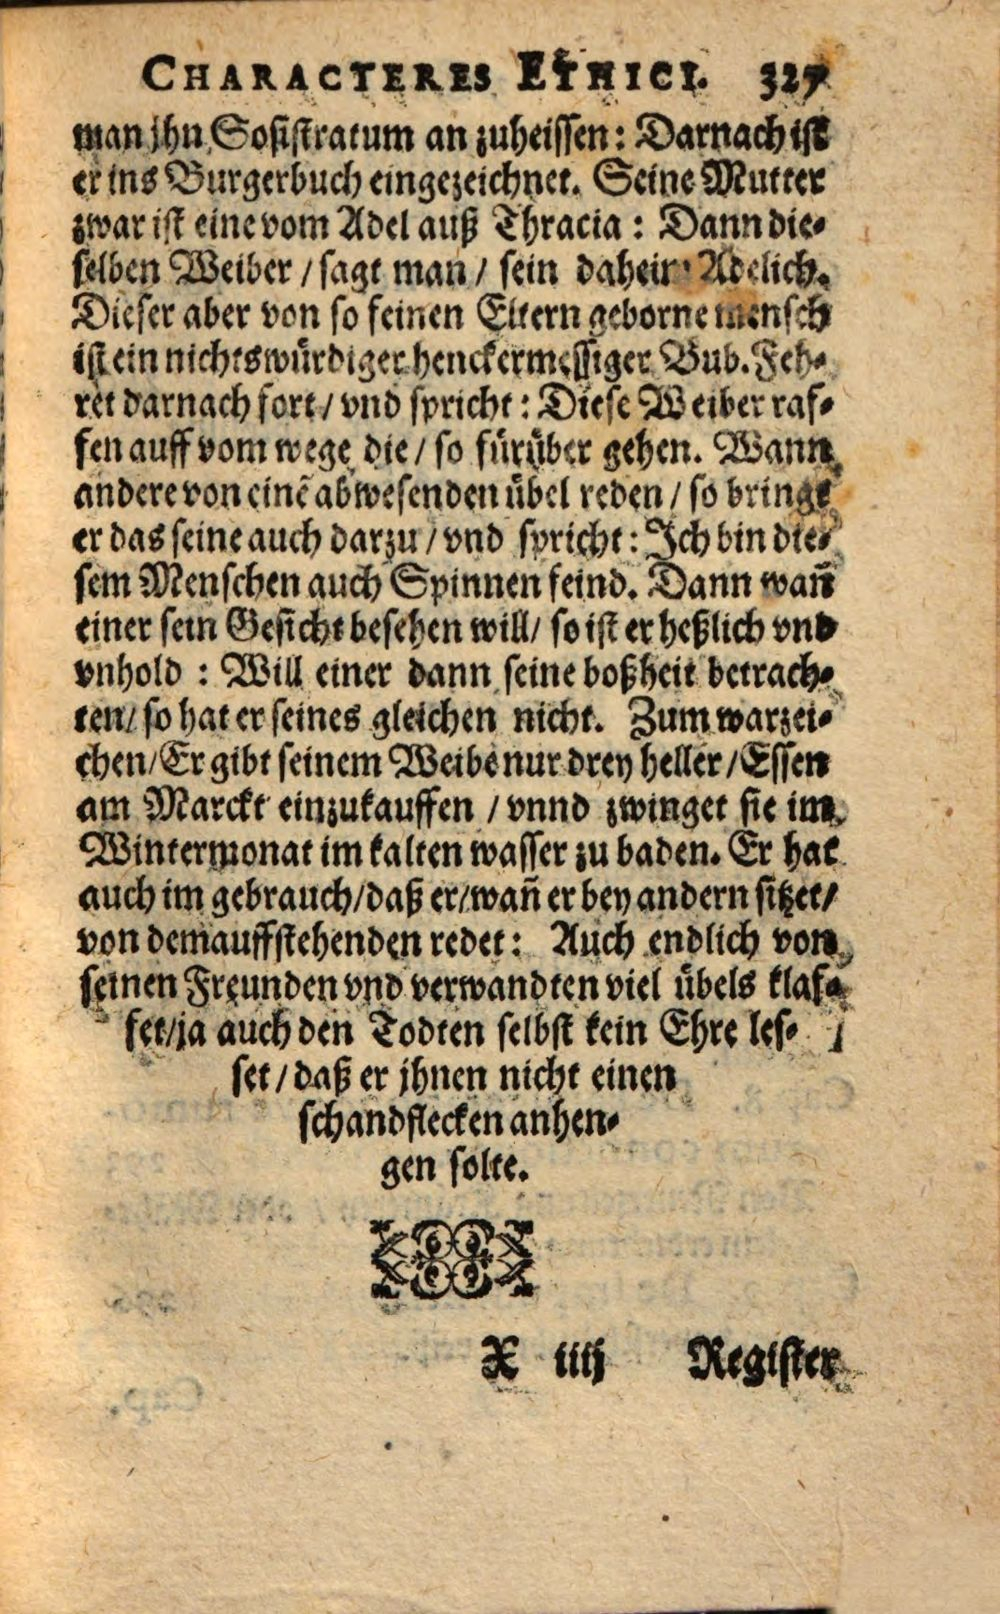 CHARACTERES ETHICI. 327
man jhn Sosistratum an zuheissen: Darnach ist
er ins Burgerbuch eingezeichnet. Seine Mutter
zwar ist eine vom Adel auß Thracia: Dann die-
selben Weiber / sagt man / sein daheim Adelich.
Dieser aber von so feinen Eltern geborne mensch
ist ein nichtswürdiger henckermessiger Bub. Feh-
ret darnach fort / vnd spricht: Diese Weiber raf-
fen auff vom wege die / so fürüber gehen. Wann
andere von einē abwesenden übel reden / so bringt
er das seine auch darzu / vnd spricht: Ich bin die-
sem Menschen auch Spinnen feind. Dann wañ
einer sein Gesicht besehen will / so ist er heßlich vnd
vnhold: Will einer dann seine boßheit betrach-
ten / so hat er seines gleichen nicht. Zum warzei-
chen / Er gibt seinem Weibe nur drey heller / Essen
am Marckt einzukauffen / vnnd zwinget sie im
Wintermonat im kalten wasser zu baden. Er hat
auch im gebrauch / daß er / wañ er bey andern sitzet /
von dem auffstehenden redet: Auch endlich von
seinen Freunden vnd verwandten viel übels klaf-
fet / ja auch den Todten selbst kein Ehre les-
set / daß er jhnen nicht einen
schandflecken anhen-
gen solte.
X iiij Register